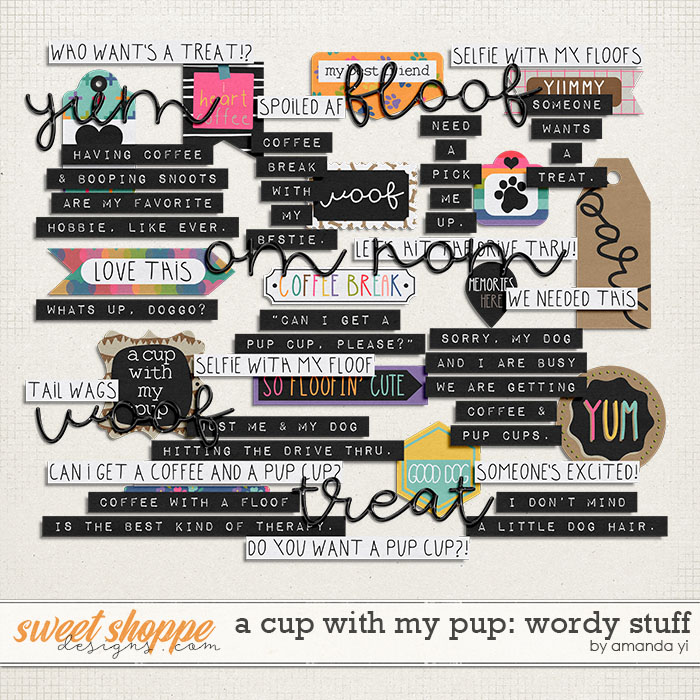 WHO WANT'S A TREAT!?
SELFIE WITH MY FLOOFS
my best friend
yum
floof
YUMMY
heart
coffee
SPOILED AF
SOMEONE
WANTS
A
TREAT.
COFFEE
BREAK
WITH
MY
BESTIE.
NEED
A
PICK
ME
UP.
HAVING COFFEE
& BOOPING SNOOTS
ARE MY FAVORITE
HOBBIE, LIKE EVER.
woof
bark
om nom
LET'S HIT THE DRIVE THRU!
LOVE THIS
COFFEE BREAK
MEMORIES
HERE
WE NEEDED THIS
WHATS UP, DOGGO?
"CAN I GET A
PUP CUP, PLEASE?"
SORRY, MY DOG
AND I ARE BUSY
WE ARE GETTING
COFFEE &
PUP CUPS.
a cup
with
my
pup
SELFIE WITH MY FLOOF
SO FLOOFIN' CUTE
TAIL WAGS
woof
YUM
JUST ME & MY DOG
HITTING THE DRIVE THRU.
CAN I GET A COFFEE AND A PUP CUP?
GOOD DOG
SOMEONE'S EXCITED!
treat
COFFEE WITH A FLOOF
IS THE BEST KIND OF THERAPY.
I DON'T MIND
A LITTLE DOG HAIR.
DO YOU WANT A PUP CUP?!
sweet shoppe
designs.com
a cup with my pup: wordy stuff
by amanda yi